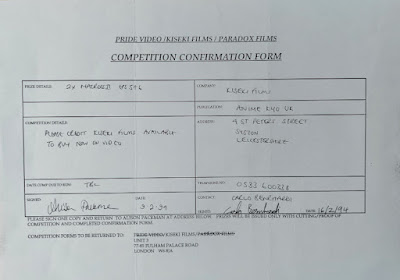 PRIDE VIDEO /KISEKI FILMS / PARADOX FILMS
COMPETITION CONFIRMATION FORM
PRIZE DETAILS: 2x MACROSS
COMPANY: KISEKI FILMS
PUBLICATION: ANIME UK
COMPETITION DETAILS:
PLEASE CREDIT KISEKI FILMS AVAILABLE
TO BUY NOW ON VIDEO
ADDRESS: 9 ST PETERS STREET
SYSTON
LEICESTERSHIRE
DATE COMP DUE TO RUN: TBC
TELEPHONE NO:
CONTACT: CARLO BERNHARDI
SIGNED:
DATE:
SIGNED:
DATE: 16/2/94
PLEASE SIGN ONE COPY AND RETURN TO ALISON PACKMAN AT ADDRESS BELOW. PRIZE WILL BE ISSUED ONLY WITH CUTTING/PROOF OF
COMPETITION AND COMPLETED CONFIRMATION FORM.
COMPETITION FORMS TO BE RETURNED TO: PRIDE VIDEO/KISEKI FILMS/PARADOX FILMS
UNIT 3
77-85 FULHAM PALACE ROAD
LONDON W6 8JA